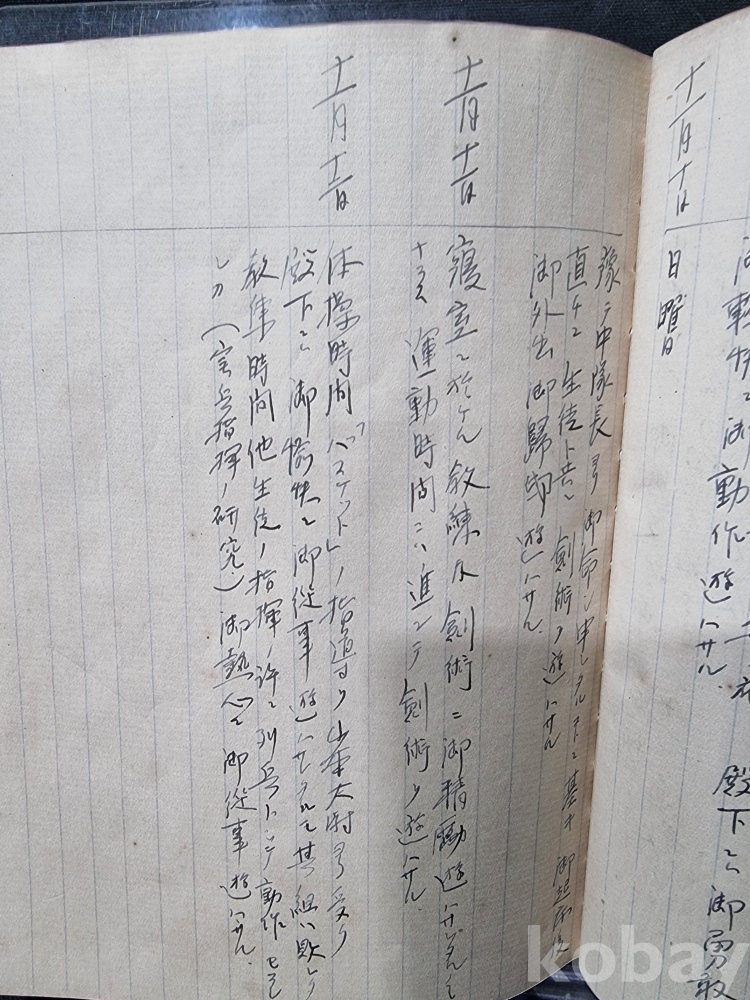 同
動作遊ハサル
殿下ニハ御勇敢
十一月十日
日曜日
豫テ中隊長ヨリ御命シ申シ基キ御起床
直チニ生徒ト共ニ剣術ヲ遊ハサル
御外出御歸邸遊ハサル
十一月十一日
寝室ニ於ケル教練及剣術ニ御精励遊ハサレタル
運動時間ニハ進ンテ剣術ヲ遊ハサル
十一月十二日
体操時間バスケットノ指導ヲ大尉ヨリ受ク
殿下ニハ御愉快ニ御従事遊ハサレタルモ其組ハ敗レタリ
教練時間他生徒ノ指揮ノ許ニ列兵トシテ動作セラ
レタリ(ノ研究)御熱心ニ御従事遊ハサル
kobay